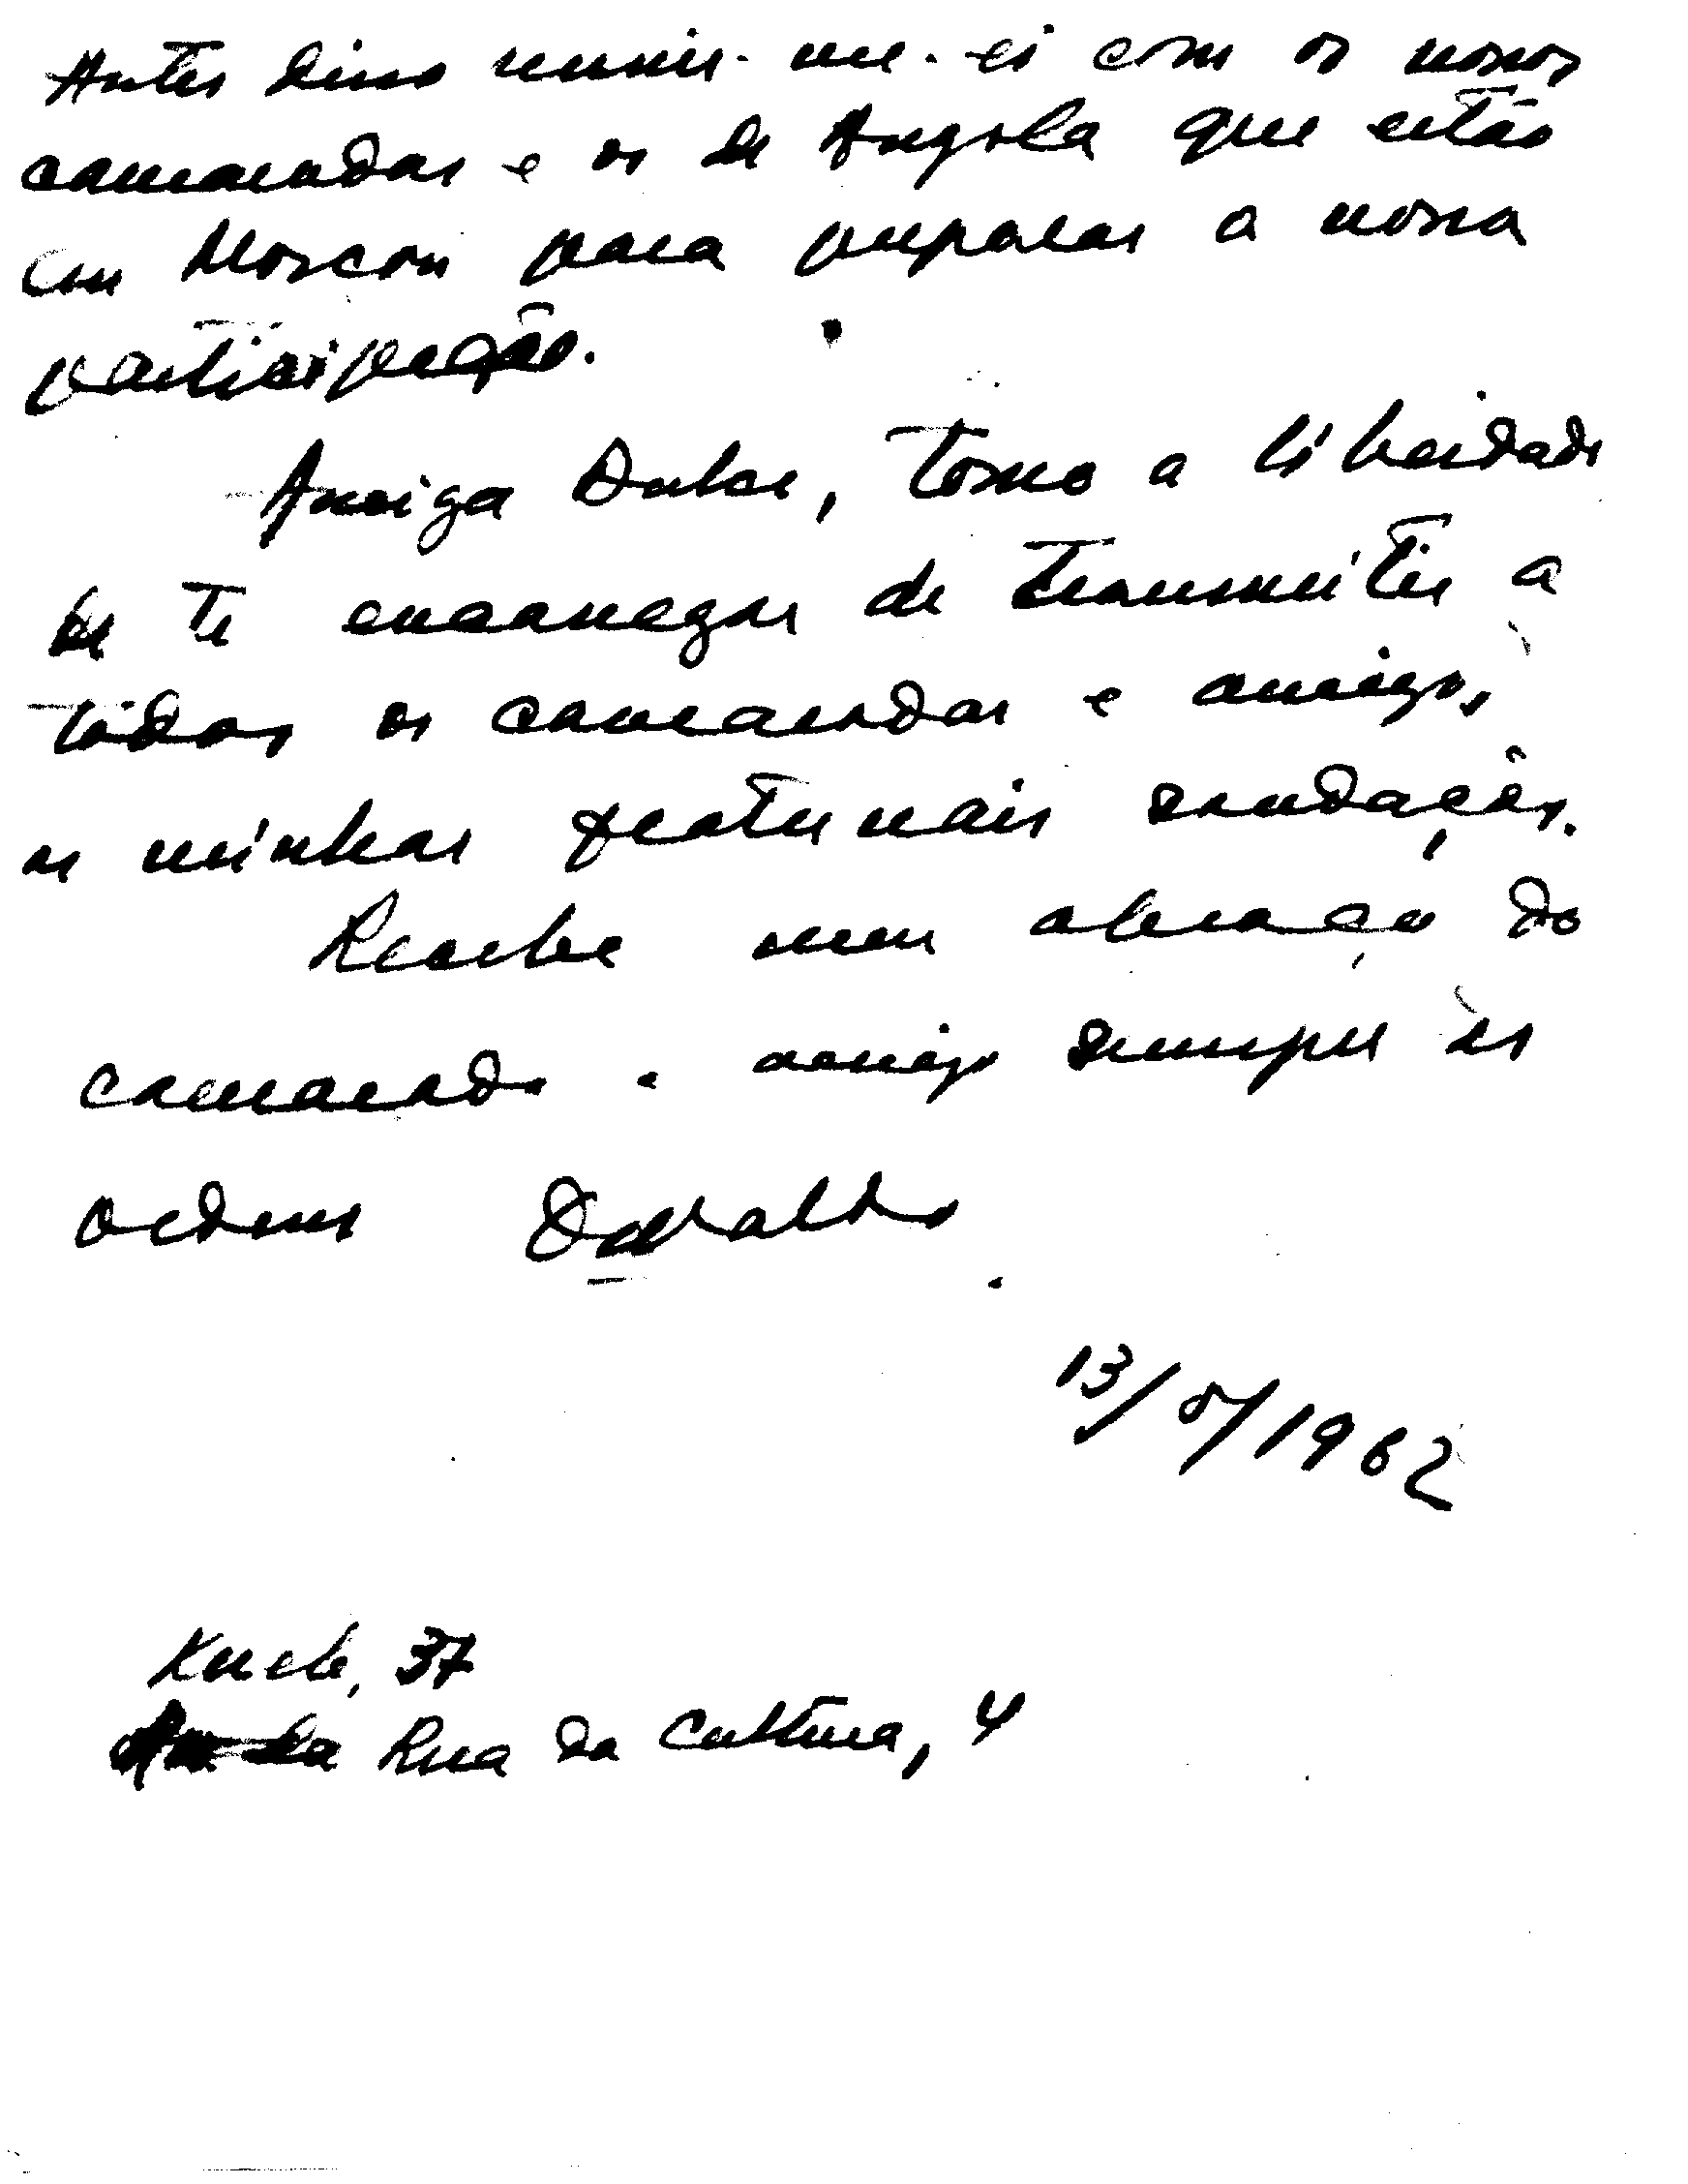 Antes disso reunir-me-ei com os nossos
camaradas e os de Angola que estão
em Moscou para preparar a nossa
participação.
Amiga Dulce, tomo a liberdade
de te encarregar de transmitir a
todos os camaradas e amigos,
as minhas fraternais saudações.
Recebe um abraço do
camarada e amigo sempre às
ordens Osvaldo
13/5/1962
37
Rua da Cultura, 4